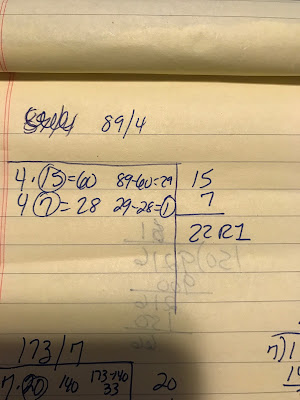 89/4
4·15=60 89-60=29 15
4 7=28 29-28=1 7
22R1
173/7
7·20 140 173-140 20
33
7)1
14